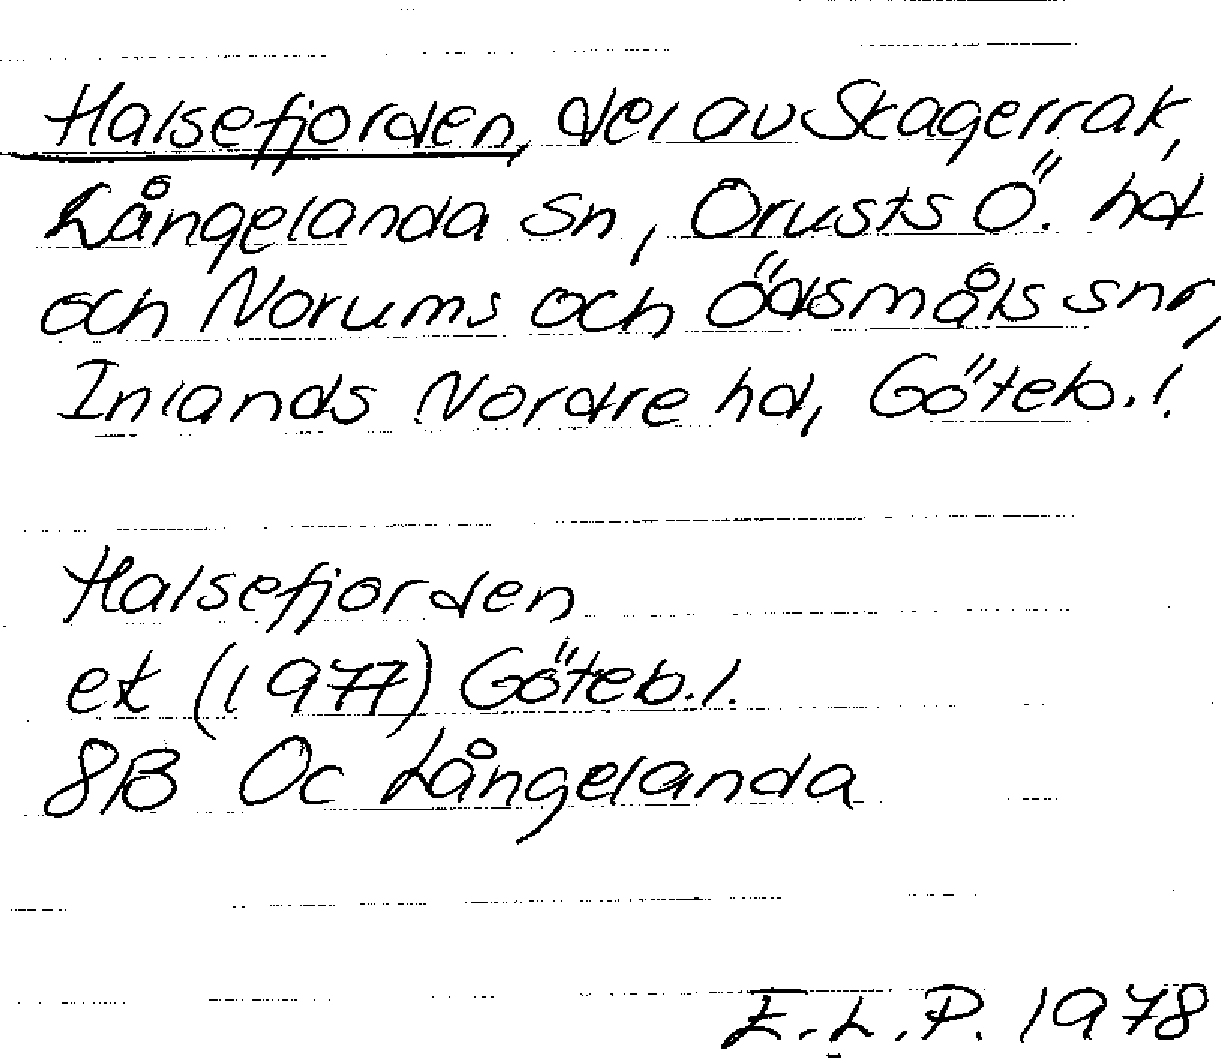 Halsefjorden, del av Skagerrak,
Långelanda sn, Orusts Ö. hd
och Norums och Ödsmåls snr,
Inlands Nordre hd, Göteb. l.
Halsefjorden
ek (1977) Göteb. l.
8B Oc Långelanda
E.L.P. 1978